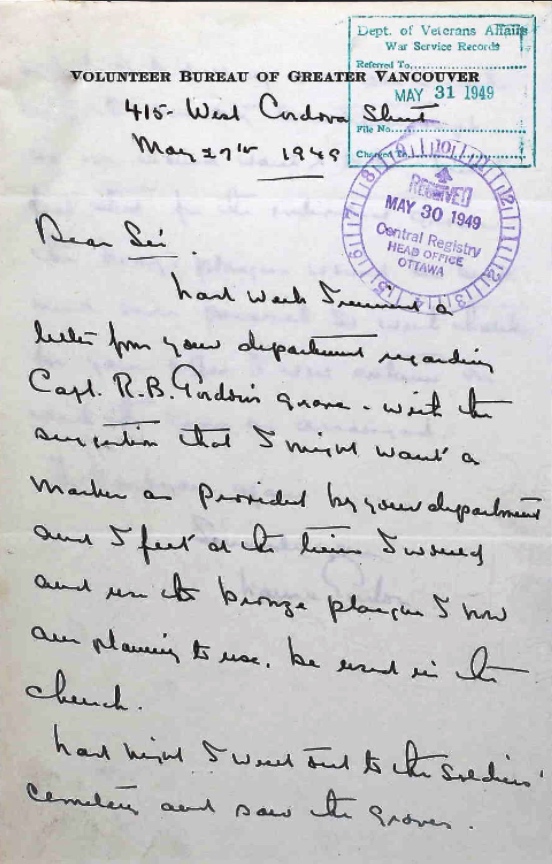 Dept. of Veterans Affairs
War Service Records
Referred To
MAY 31 1949
File No.
Charged To
VOLUNTEER BUREAU OF GREATER VANCOUVER
415- West Cordova Street
May 27th 1949
RECEIVED
MAY 30 1949
Central Registry
HEAD OFFICE
OTTAWA
Dear Sir.
Last week I received a
letter from your department regarding
Capt. R.B. Gordon's grave - with the
suggestion that I might want a
marker as provided by your department
and I feel at the time I would
and use the bronze plaque I now
am planning to use, be used in the
church.
Last night I went out to the Soldiers'
cemetery and saw the graves.